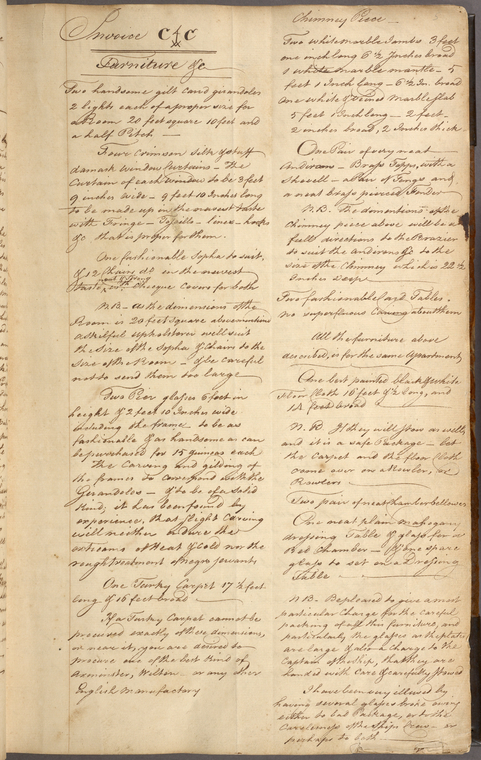 Invoice C C
Furniture &c
Two handsome gilt Card girandoles
2 lights each of a proper size for
a Room 20 feet square 10 feet and
a half Pitch
Four Crimson silk & stuff
damask window Curtains – The
Curtain of each Window to be 3 feet
9 inches wide – 9 feet 10 Inches long
to be made up in the newest taste
with Fringe – Tassills – lines – hooks
&c that is proper for them.
One fashionable Sopha to suit,
& 12 Chairs do in the newest
taste, wth Cheque Covers for both
N.B – As the dimensions of the
Room is 20 feet square above mentioned
a skilful upholsterer will suit
the size of the Sopha & Chairs to the
size of the Room – & be careful
not to send them too large
Two Pier glasses 6 feet in
height & 2 feet 10 Inches wide
including the frame to be as
fashionable & as handsome as can
be purchased for 15 guineas each
The Carving and gilding of
the frames to correspond with the
Girandoles – & to be of a solid
kind, it has been found by
experience, that slight Carving
will neither endure the
extreams of Heat & Cold nor the
rough treatment of Negro servants
One Turky Carpet 17 ½ feet
long & 16 feet broad
If a Turky Carpet cannot be
procured exactly of those dimensions,
or near it, you are desired to
procure one of the best kind of
Axminster, Wilton, or any other
English Manufactory
Chimney Piece
Two white marble Jambs 3 feet
one inch long 6 ½ Inches broad
1 white marble mantle – 5
feet 1 Inch long – 6 ½ In. broad
One white & veined Marble slab
5 feet 1 Inch long – 2 feet
2 inches broad, 2 Inches thick.
One Pair of very neat
Andirons – Brass Topps, with a
Shovell – a Pair of Tongs and
a neat brass pierced Fender
N.B. The dimentions of the
Chimney piece above will be a
full directions to the Brazier
to suit the andirons &c to the
size of the Chimney which is 22 ½
Inches deep
Two fashionable Card Tables.
no superfluous Carving about them
All the furniture above
described, is for the same Apartment,
One best painted black & white
Floor Cloth 16 feet ½ long, and
14 feet broad
N.B If they will stow as well,
and it is a safe Package – let
the Carpet and the floor Cloth
come over on a Roler, or
Rowlers
Two pair of neat Chamber bellows
One neat plain mahogany
dressing Table & glass for a
Bed Chamber – & one spare
glass to set on a Dressing
Table
N.B. Be pleased to give a most
particular Charge for the careful
packing of all this furniture, and
particularly the glasses as the plates
are large & also a Charge to the
Captain of the Ship, that they are
handed with Care & carefully stowed
I have been very ill used by
having several glasses broke owing
either to bad Package, or to the
Carelessness of the Ships Crew – or
perhaps to both